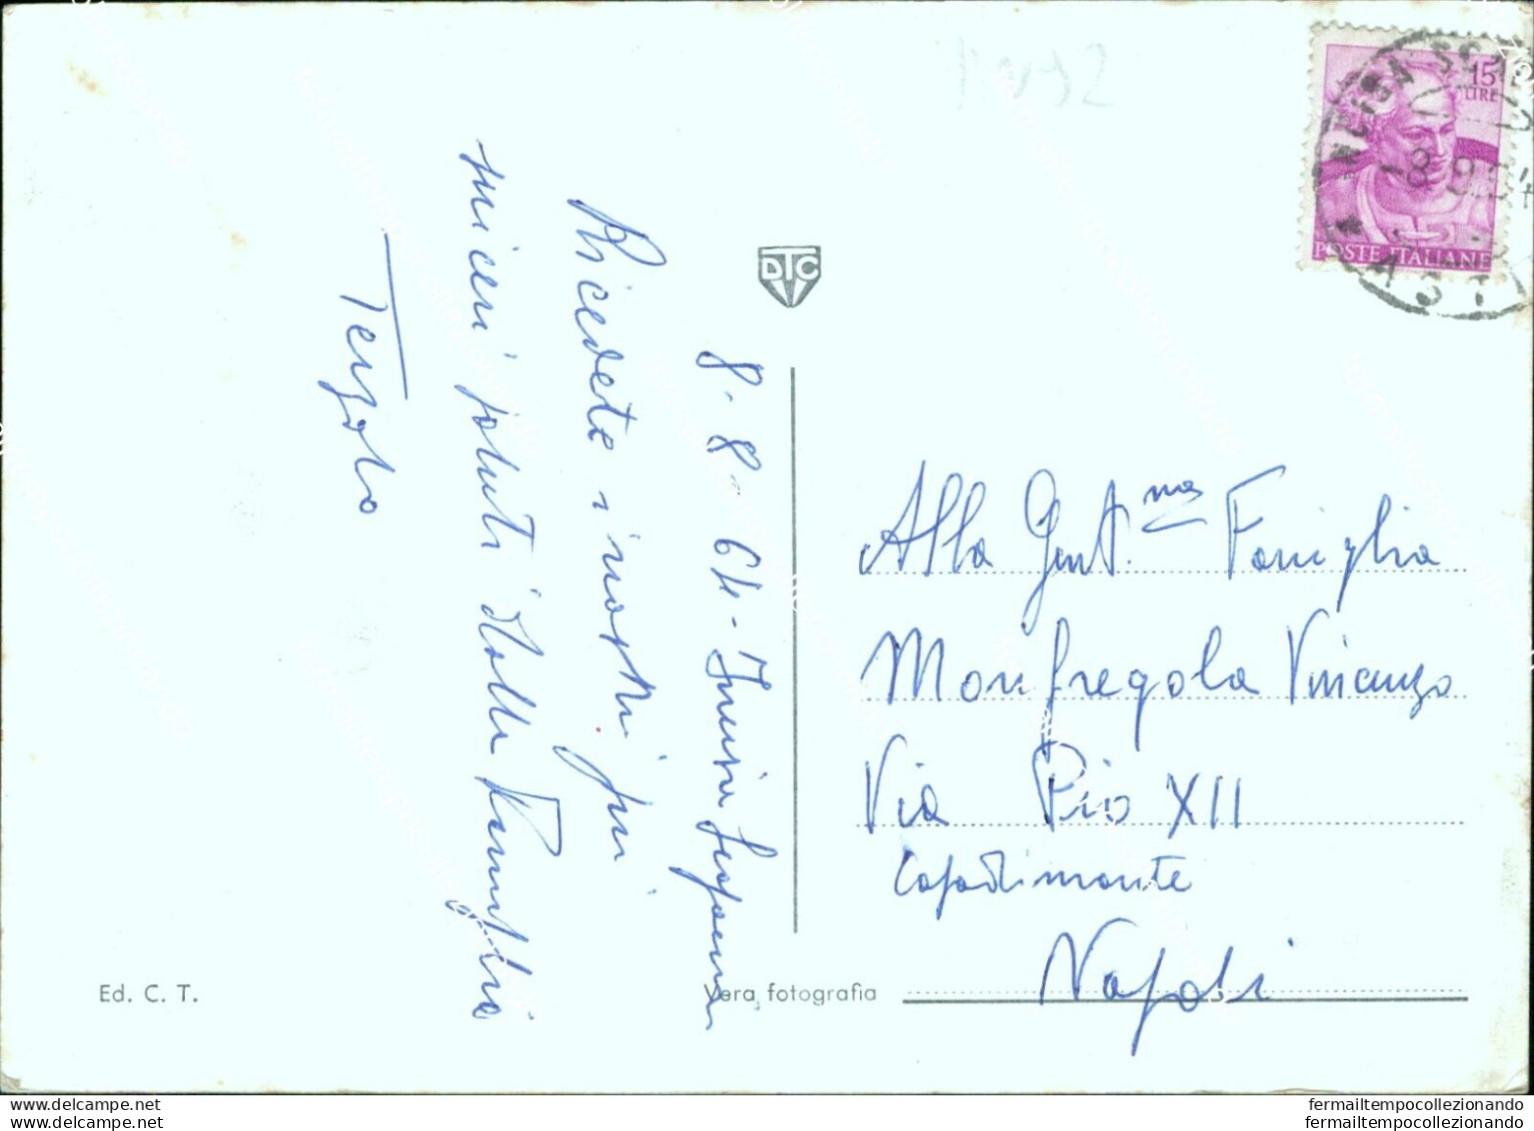 8-8-64-
Ricevete i nostri più
sinceri saluti dalla Famiglia
Terzolo
Alla Gent.ma Famiglia
Monfregola Vincenzo
Via Pio XII
Capodimonte
Napoli
Ed. C. T.
Vera fotografia
DTC
15
LIRE
POSTE ITALIANE
ASTI
www.delcampe.net
www.delcampe.net
fermailtempocollezionando
fermailtempocollezionando